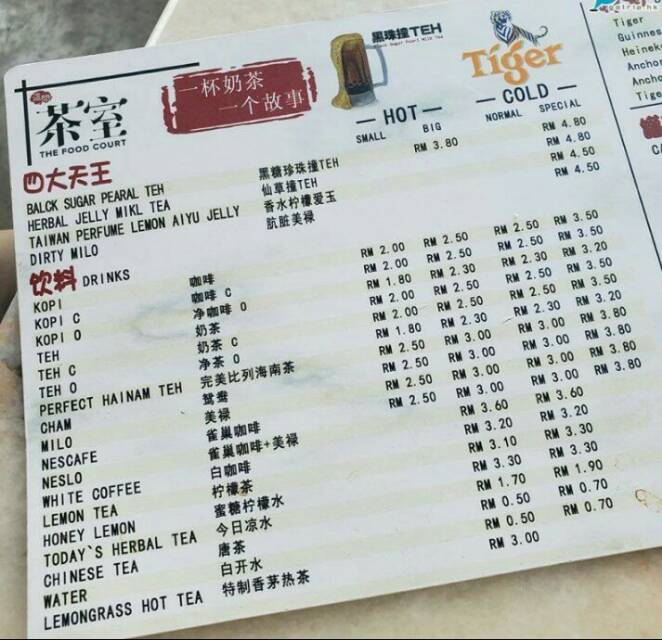 茶室
THE FOOD COURT
一杯奶茶
一个故事
黑珠撞TEH
Black Sugar Pearl Milk Tea
Tiger
HOT COLD
SMALL BIG NORMAL SPECIAL
四大天王
BALCK SUGAR PEARAL TEH 黑糖珍珠撞TEH RM 3.80 RM 4.80
HERBAL JELLY MIKL TEA 仙草撞TEH RM 4.80
TAIWAN PERFUME LEMON AIYU JELLY 香水柠檬爱玉 RM 4.50
DIRTY MILO 肮脏美禄 RM 4.50
饮料 DRINKS
KOPI 咖啡 RM 2.00 RM 2.50 RM 2.50 RM 3.50
KOPI C 咖啡 C RM 2.00 RM 2.50 RM 2.50 RM 3.50
KOPI O 净咖啡 O RM 1.80 RM 2.30 RM 2.30 RM 3.20
TEH 奶茶 RM 2.00 RM 2.50 RM 2.50 RM 3.50
TEH C 奶茶 C RM 2.00 RM 2.50 RM 2.50 RM 3.50
TEH O 净茶 O RM 1.80 RM 2.30 RM 2.30 RM 3.20
PERFECT HAINAM TEH 完美比列海南茶 RM 2.50 RM 3.00 RM 3.00 RM 3.80
CHAM 鸳鸯 RM 2.50 RM 3.00 RM 3.00 RM 3.80
MILO 美禄 RM 2.50 RM 3.00 RM 3.00 RM 3.80
NESCAFE 雀巢咖啡 RM 2.50 RM 3.00 RM 3.00 RM 3.80
NESLO 雀巢咖啡+美禄 RM 3.60 RM 3.60
WHITE COFFEE 白咖啡 RM 3.20 RM 3.20
LEMON TEA 柠檬茶 RM 3.10 RM 3.30
HONEY LEMON 蜜糖柠檬水 RM 3.30 RM 3.30
TODAY`S HERBAL TEA 今日凉水 RM 1.70 RM 1.90
CHINESE TEA 唐茶 RM 0.50 RM 0.70
WATER 白开水 RM 0.50 RM 0.70
LEMONGRASS HOT TEA 特制香茅热茶 RM 3.00
Tiger
Guinnes
Heineke
Anchor
Ancho
Tige